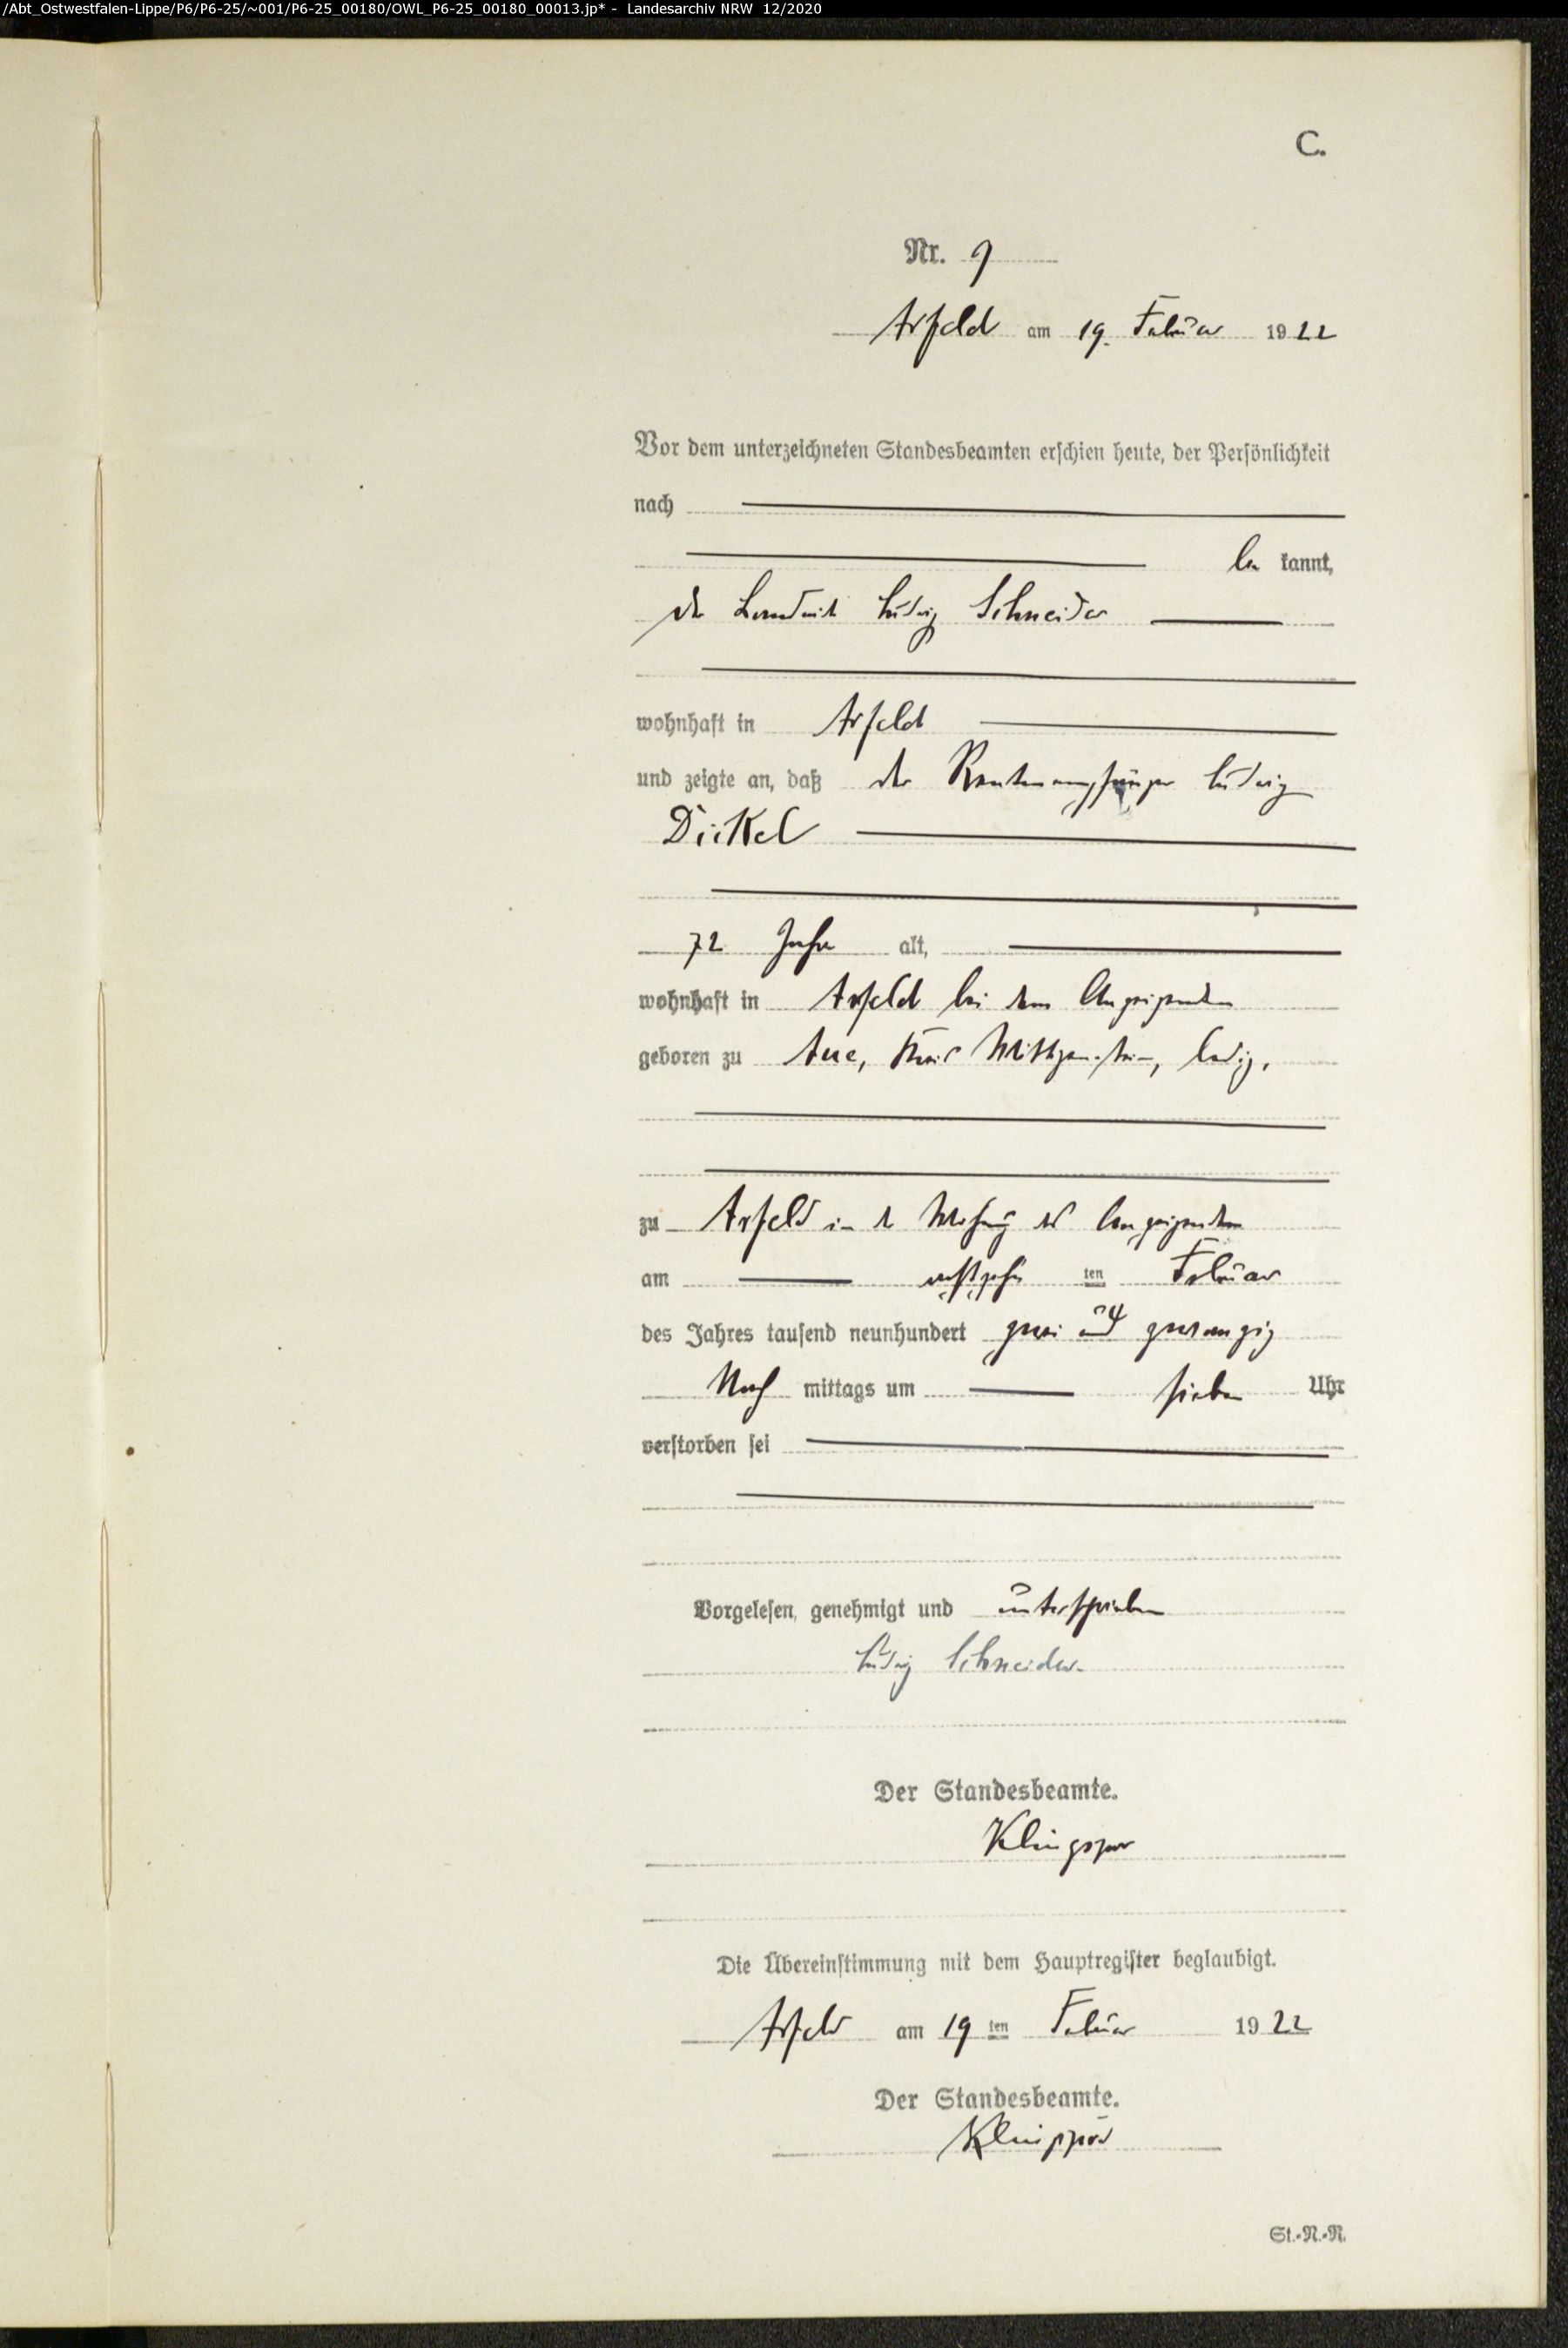 /Abt_Ostwestfalen-Lippe/P6/P6-25/~001/P6-25_00180/OWL_P6-25_00180_00013.jp* - Landesarchiv NRW 12/2020
C.
Nr. 9
Arfeld am 19. Februar 1922
Vor dem unterzeichneten Standesbeamten erschien heute, der Persönlichkeit
nach
be kannt,
der Landwirt Ludwig Schneider
wohnhaft in Arfeld
und zeigte an, daß der Rentenempfänger Ludwig
Dickel
72 Jahre alt,
wohnhaft in Arfeld bei dem Anzeigenden
geboren zu Aue, Kreis Wittgenstein, ledig,
zu Arfeld in der Wohnung des Anzeigenden
am achtzehn ten Februar
des Jahres tausend neunhundert zwei und zwanzig
Nach mittags um sieben Uhr
verstorben sei
Vorgelesen, genehmigt und unterschrieben
Ludwig Schneider.
Der Standesbeamte.
Klingspor
Die Übereinstimmung mit dem Hauptregister beglaubigt.
Arfeld am 19 ten Februar 1922
Der Standesbeamte.
Klingspor
St.-N.-R.